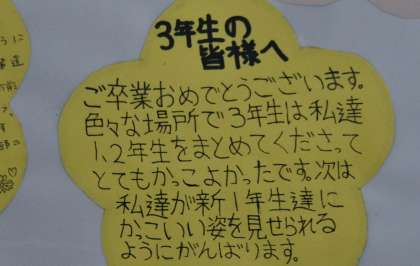 3年生の
皆様へ
ご卒業おめでとうございます。
色々な場所で3年生は私達
1、2年生をまとめてくださって
とてもかっこよかったです。次は
私達が新1年生達に
かっこいい姿を見せられる
ようにがんばります。